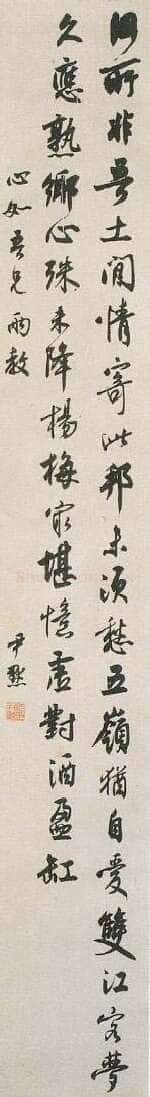 何所非吾土閒情寄此邦未須愁五嶺猶自愛雙江客夢
久應熟鄉心殊未降楊梅最堪憶虛對酒盈缸
心如吾兄教
尹默